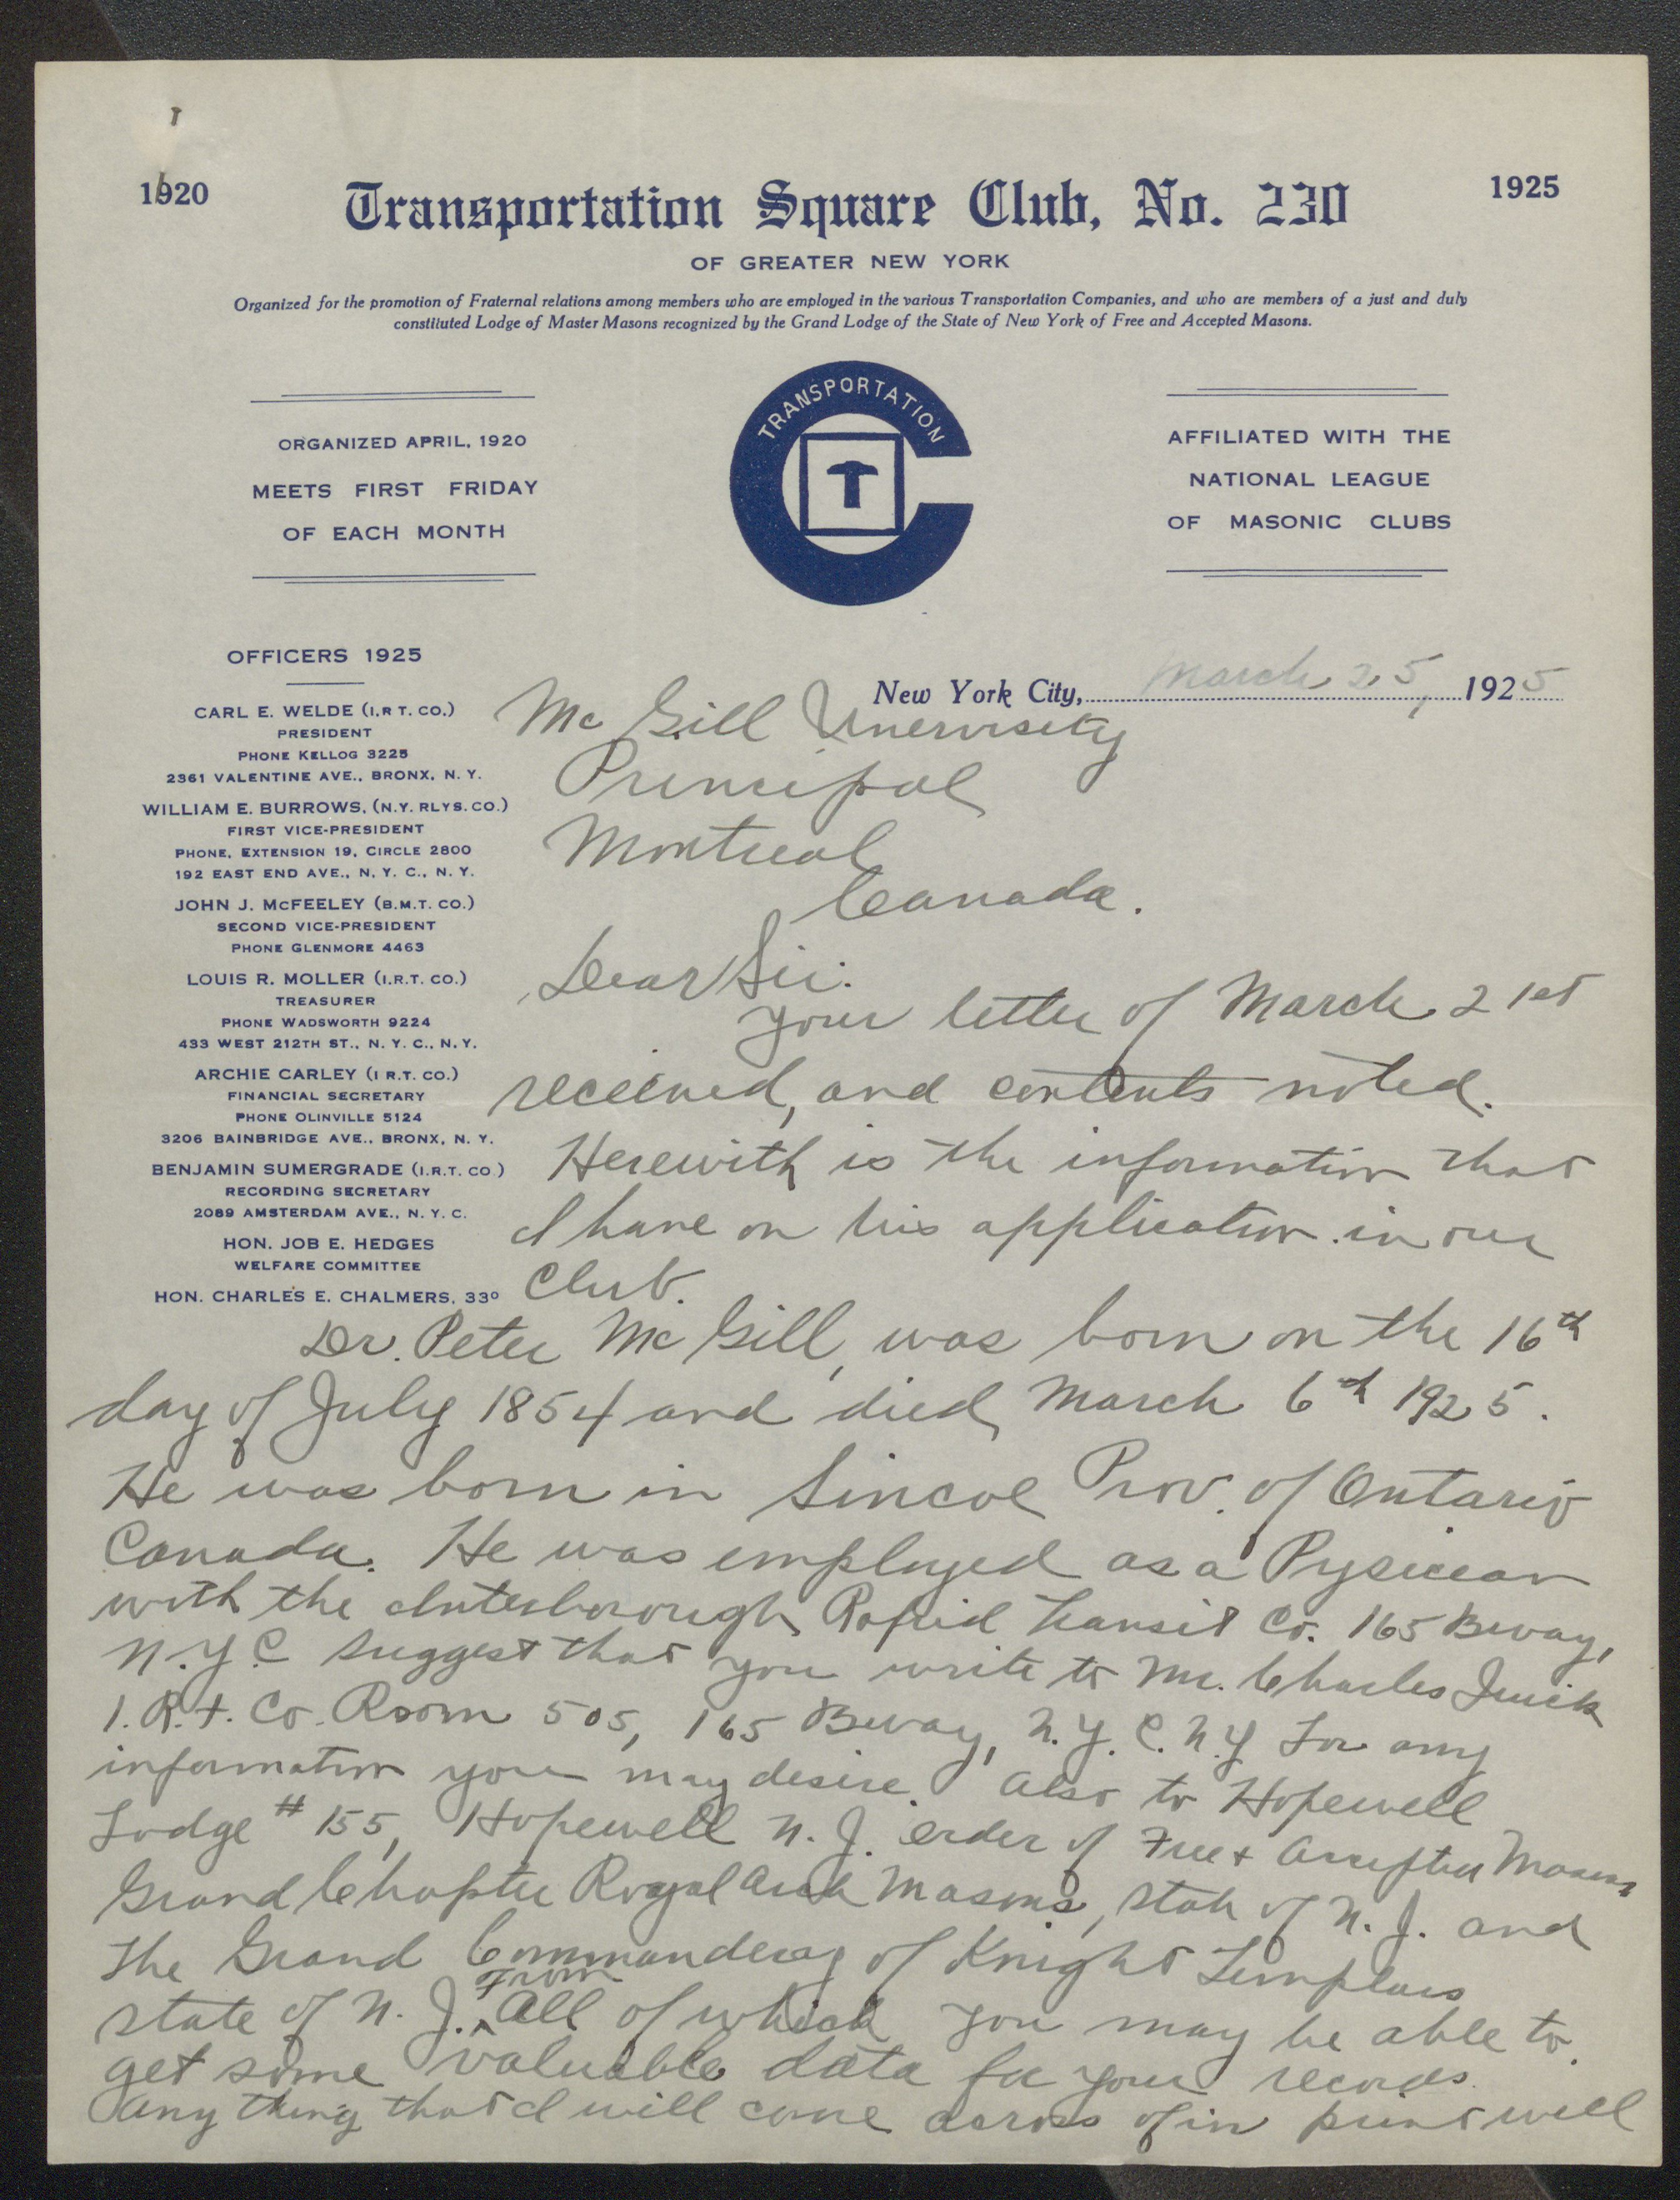 1920
1925
Transportation Square Club, No. 230
OF GREATER NEW YORK
Organized for the promotion of Fraternal relations among members who are employed in the various Transportation Companies, and who are members of a just and duly
constituted Lodge of Master Masons recognized by the Grand Lodge of the State of New York of Free and Accepted Masons.
ORGANIZED APRIL, 1920
MEETS FIRST FRIDAY
OF EACH MONTH
TRANSPORTATION
T
AFFILIATED WITH THE
NATIONAL LEAGUE
OF MASONIC CLUBS
OFFICERS 1925
CARL E. WELDE (I.R T. CO.)
PRESIDENT
PHONE KELLOG 3225
2361 VALENTINE AVE., BRONX, N. Y.
WILLIAM E. BURROWS, (N.Y. RLYS. CO.)
FIRST VICE-PRESIDENT
PHONE, EXTENSION 19, CIRCLE 2800
192 EAST END AVE., N. Y. C., N. Y.
JOHN J. McFEELEY (B.M.T. CO.)
SECOND VICE-PRESIDENT
PHONE GLENMORE 4463
LOUIS R. MOLLER (I.R.T. CO.)
TREASURER
PHONE WADSWORTH 9224
433 WEST 212TH ST., N. Y. C., N. Y.
ARCHIE CARLEY (I R.T. CO.)
FINANCIAL SECRETARY
PHONE OLINVILLE 5124
3206 BAINBRIDGE AVE., BRONX, N. Y.
BENJAMIN SUMERGRADE (I.R.T. CO )
RECORDING SECRETARY
2089 AMSTERDAM AVE., N. Y. C.
HON. JOB E. HEDGES
WELFARE COMMITTEE
HON. CHARLES E. CHALMERS, 33º
New York City, March 25, 1925
Mc Gill Unervisity
Principal
Montreal
Canada.
Dear Sir:
your letter of March 21st
received, and contents noted.
Herewith is the information that
I have on his application in our
Club.
Dr. Peter Mc Gill, was born on the 16th
day of July 1854 and died March 6th 1925.
He was born in Sincoe Prov. of Ontario
Canada. He was employed as a Pysician
with the Interborough Rapid Transit Co. 165 Bway,
N.Y.C suggest that you write to Mr. Charles
I.R.T. Co. Room 505, 165 Bway, N.Y.C. N.Y for any
information you may desire. Also to Hopewell
Lodge # 155, Hopewell N.J. order of Free & Accepted Masons
Grand Chapter Royal Arch Masons, State of N.J. and
the Grand Commandery of Knight Templars
state of N.J. From All of which you may be able to
get some valuable data for your records.
Any thing that I will come across of in print will